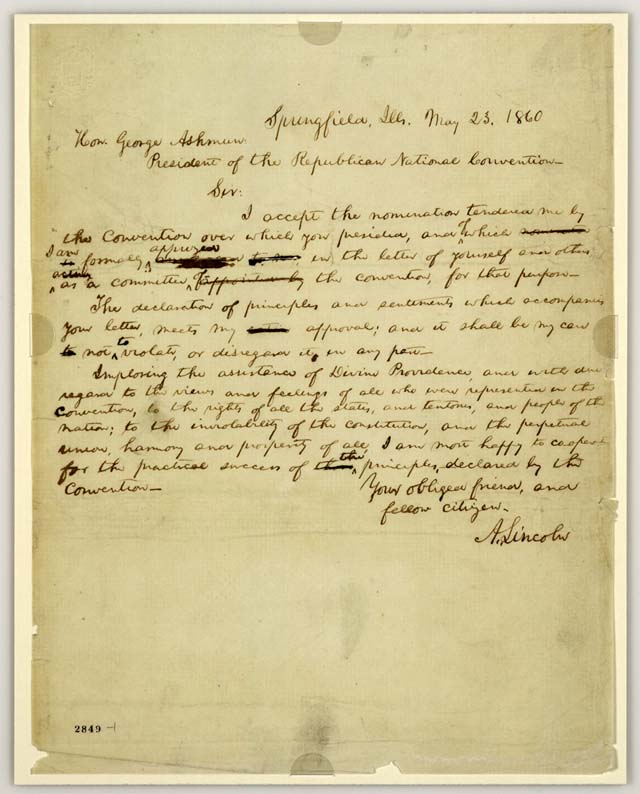 Springfield, Ills. May 23, 1860
Hon. George Ashmun:
President of the Republican National Convention—
Sir:
I accept the nomination tendered me by
the Convention over which you presided, and of which
I am formally apprized in the letter of yourself and others
acting as a committee of the convention, for that purpose—
The declaration of principles and sentiments which accompanies
your letter, meets my approval; and it shall be my care
not to violate, or disregard it, in any part—
Imploring the assistance of Divine Providence, and with due
regard to the views and feelings of all who were represented in the
Convention; to the rights of all the states, and territories, and people of the
nation; to the inviolability of the constitution, and the perpetual
union, harmony and prosperity of all, I am most happy to co-operate
for the practical success of the principles declared by the
Convention—
Your obliged friend, and
fellow citizen.
A. Lincoln
2849